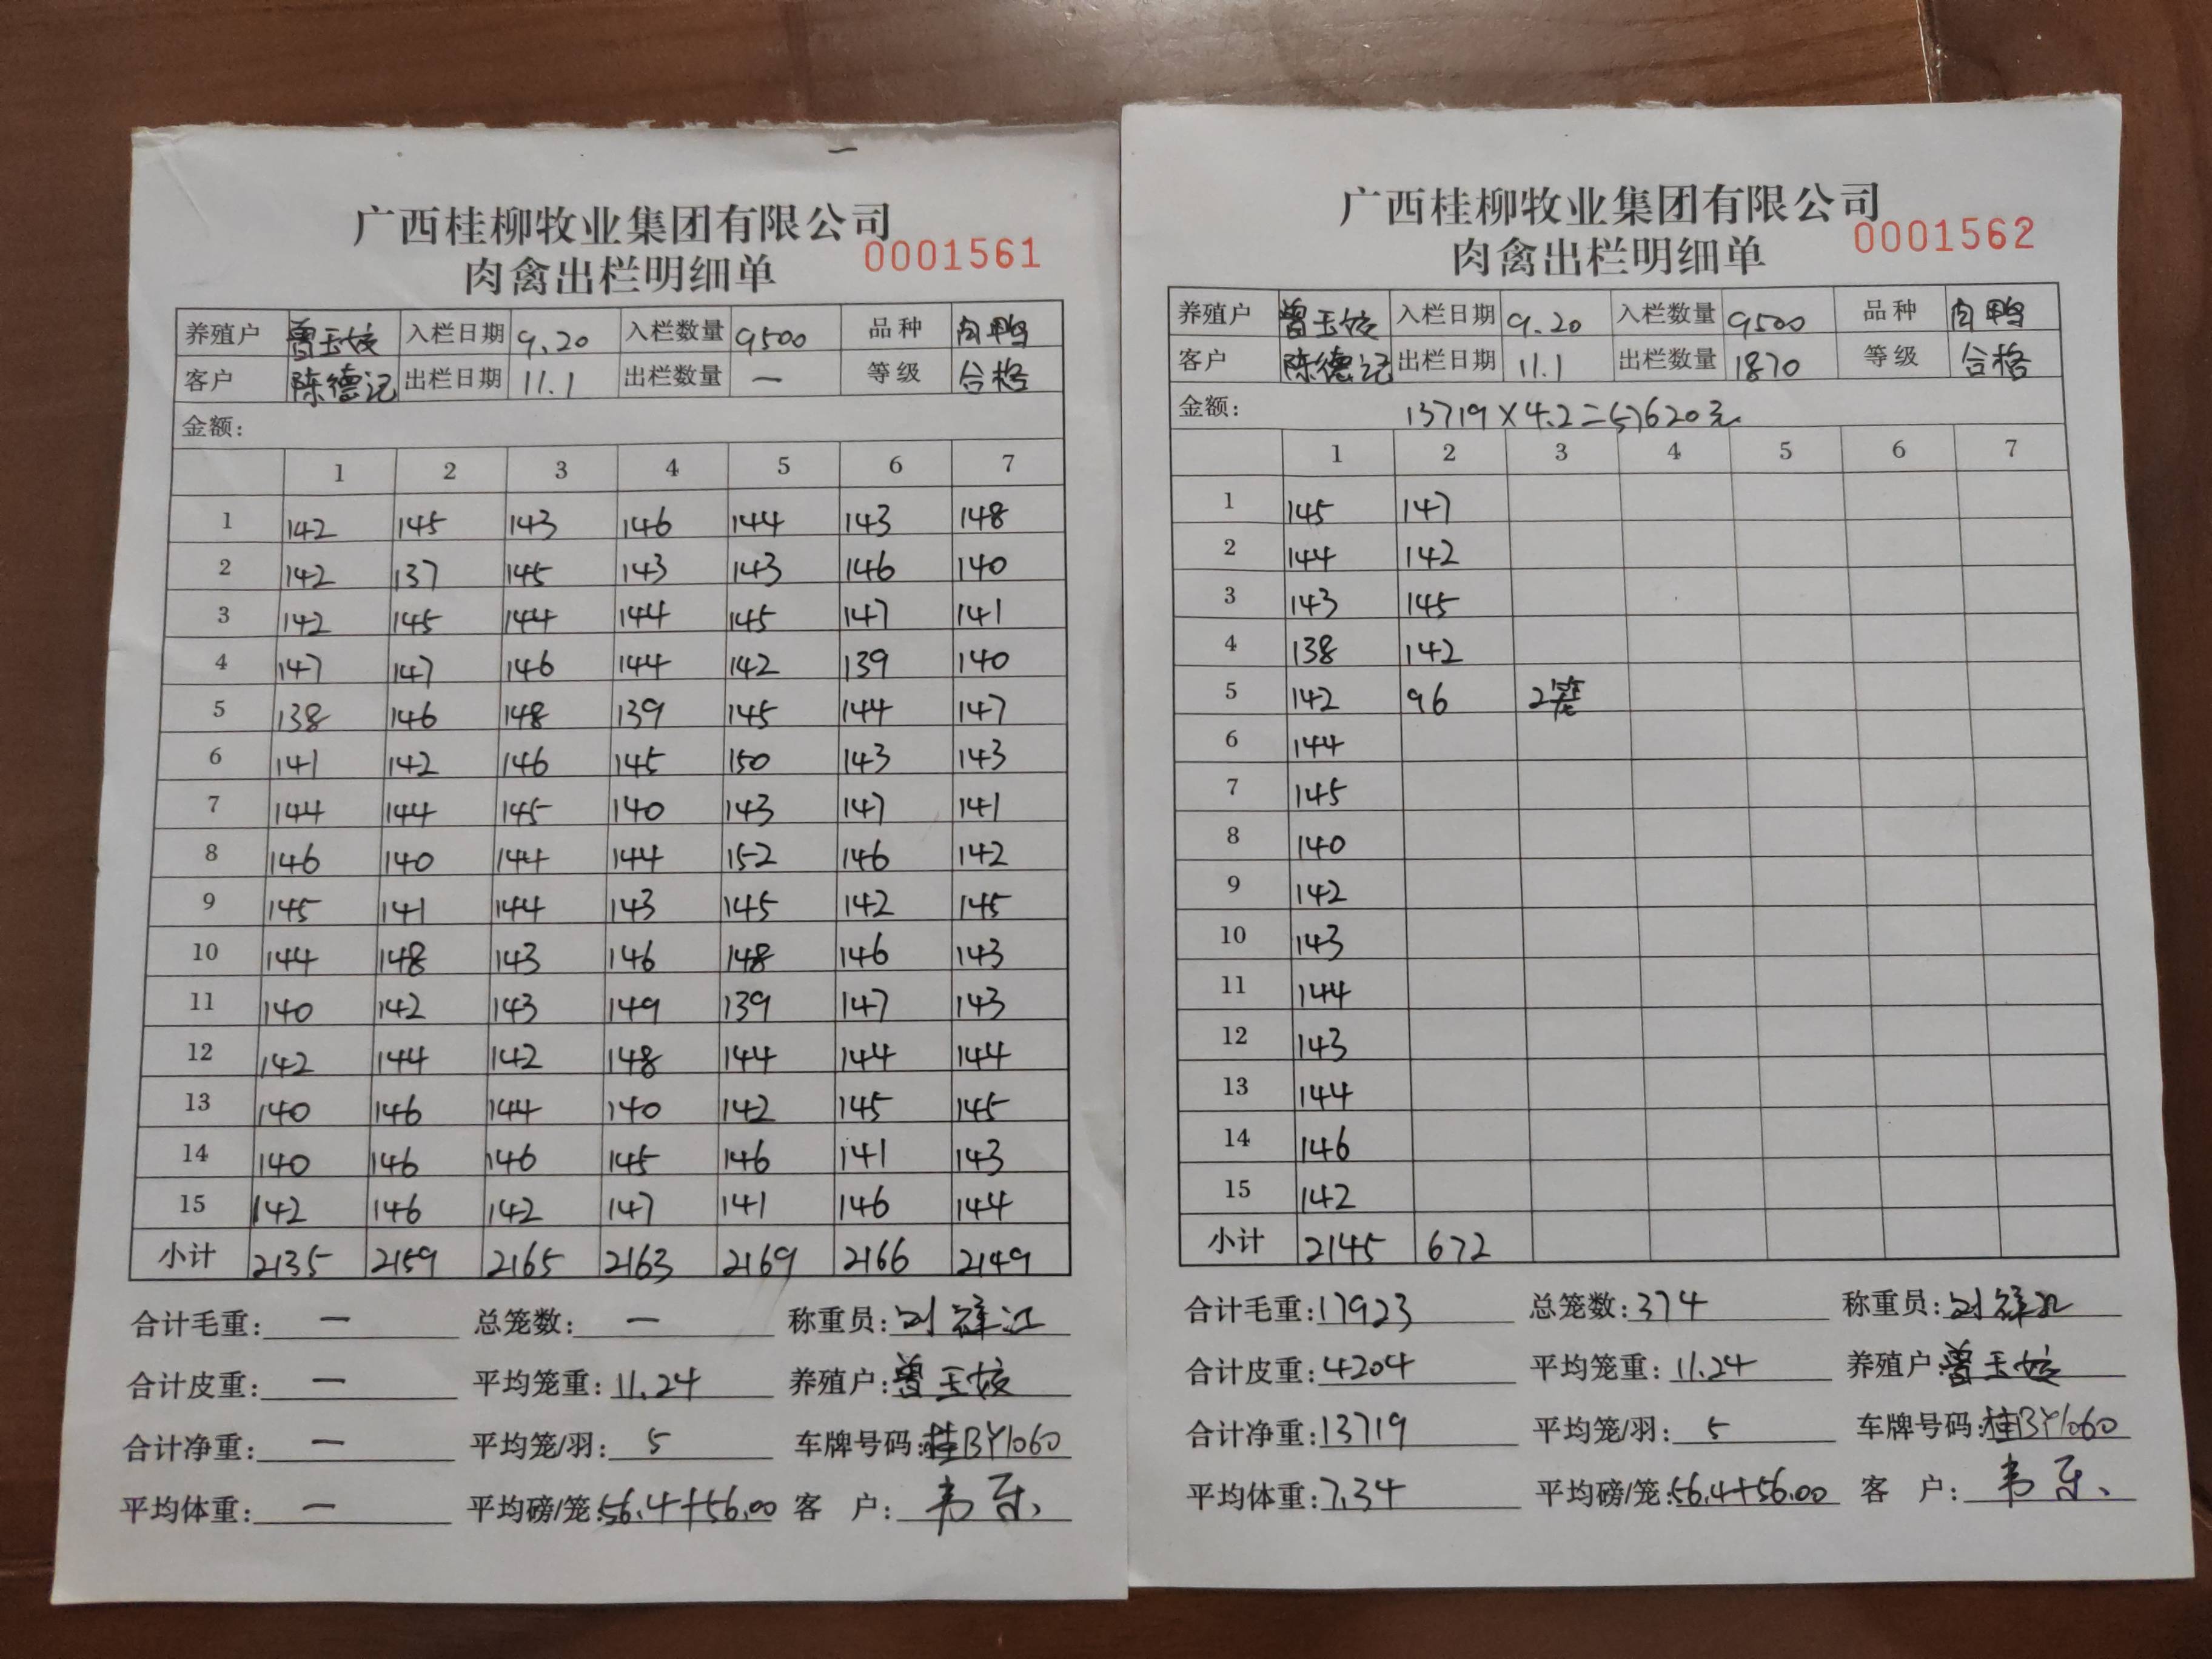 广西桂柳牧业集团有限公司
肉禽出栏明细单
0001561
养殖户 曾玉姣 入栏日期 9.20 入栏数量 9500 品种 肉鸭
客户 陈德记 出栏日期 11.1 出栏数量 — 等级 合格
金额:
1 2 3 4 5 6 7
1 142 145 143 146 144 143 148
2 142 137 145 143 143 146 140
3 142 145 144 144 145 147 141
4 147 147 146 144 142 139 140
5 138 146 148 139 145 144 147
6 141 142 146 145 150 143 143
7 144 144 145 140 143 147 141
8 146 140 144 144 152 146 142
9 145 141 144 143 145 142 145
10 144 148 143 146 148 146 143
11 140 142 143 149 139 147 143
12 142 144 142 148 144 144 144
13 140 146 144 140 142 145 145
14 140 146 146 145 146 141 143
15 142 146 142 147 141 146 144
小计 2135 2159 2165 2163 2169 2166 2149
合计毛重: — 总笼数: — 称重员:
合计皮重: — 平均笼重: 11.24 养殖户: 曾玉姣
合计净重: — 平均笼/羽: 5 车牌号码: 桂BY1060
平均体重: — 平均磅/笼: 56.4+56.00 客 户: 韦
广西桂柳牧业集团有限公司
肉禽出栏明细单
0001562
养殖户 曾玉姣 入栏日期 9.20 入栏数量 9500 品种 肉鸭
客户 陈德记 出栏日期 11.1 出栏数量 1870 等级 合格
金额: 13719×4.2=57620元
1 2 3 4 5 6 7
1 145 147
2 144 142
3 143 145
4 138 142
5 142 96 2笼
6 144
7 145
8 140
9 142
10 143
11 144
12 143
13 144
14 146
15 142
小计 2145 672
合计毛重: 17923 总笼数: 374 称重员:
合计皮重: 4204 平均笼重: 11.24 养殖户: 曾玉姣
合计净重: 13719 平均笼/羽: 5 车牌号码: 桂BY1060
平均体重: 7.34 平均磅/笼: 56.4+56.00 客 户: 韦